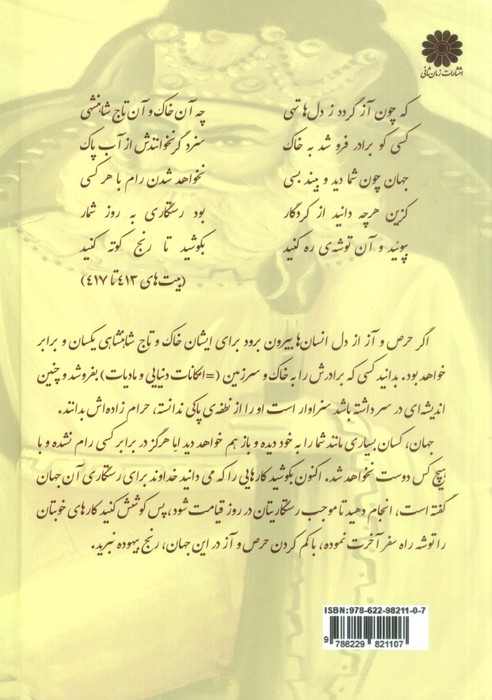 انتشارات زمان ثانی
که چون آز گردد ز دل‌ها تهی چه آن خاک و آن تاج شاهنشهی
کسی کو برادر فروشد به خاک سزد گر نخوانندش از آب پاک
جهان چون شما دید و بیند بسی نخواهد شدن رام با هر کسی
کزین هرچه دانید از کردگار بود رستگاری به روز شمار
بپوئید و آن توشه‌ی ره کنید بکوشید تا رنج کوته کنید
(بیت‌های ۴۱۳ تا ۴۱۷)
اگر حرص و آز از دل انسان‌ها بیرون برود برای ایشان خاک و تاج شاهنشاهی یکسان و برابر
خواهد بود. بدانید کسی که برادرش را به خاک و سرزمین (=امکانات دنیایی و مادیات) بفروشد و چنین
اندیشه‌ای در سر داشته باشد سزاوار است او را از نطفه‌ی پاکی ندانسته، حرام زاده‌اش بدانند.
جهان، کسان بسیاری مانند شما را به خود دیده و باز هم خواهد دید اما هرگز در برابر کسی رام نشده و با
هیچ کس دوست نخواهد شد. اکنون بکوشید کارهایی را که می دانید خداوند برای رستگاری آن جهان
گفته است، انجام دهید تا موجب رستگاریتان در روز قیامت شود، پس کوشش کنید کارهای خوبتان
را توشه راه سفر آخرت نموده، با کم کردن حرص و آز در این جهان، رنج بیهوده نبرید.
ISBN:978-622-98211-0-7
9 786229 821107